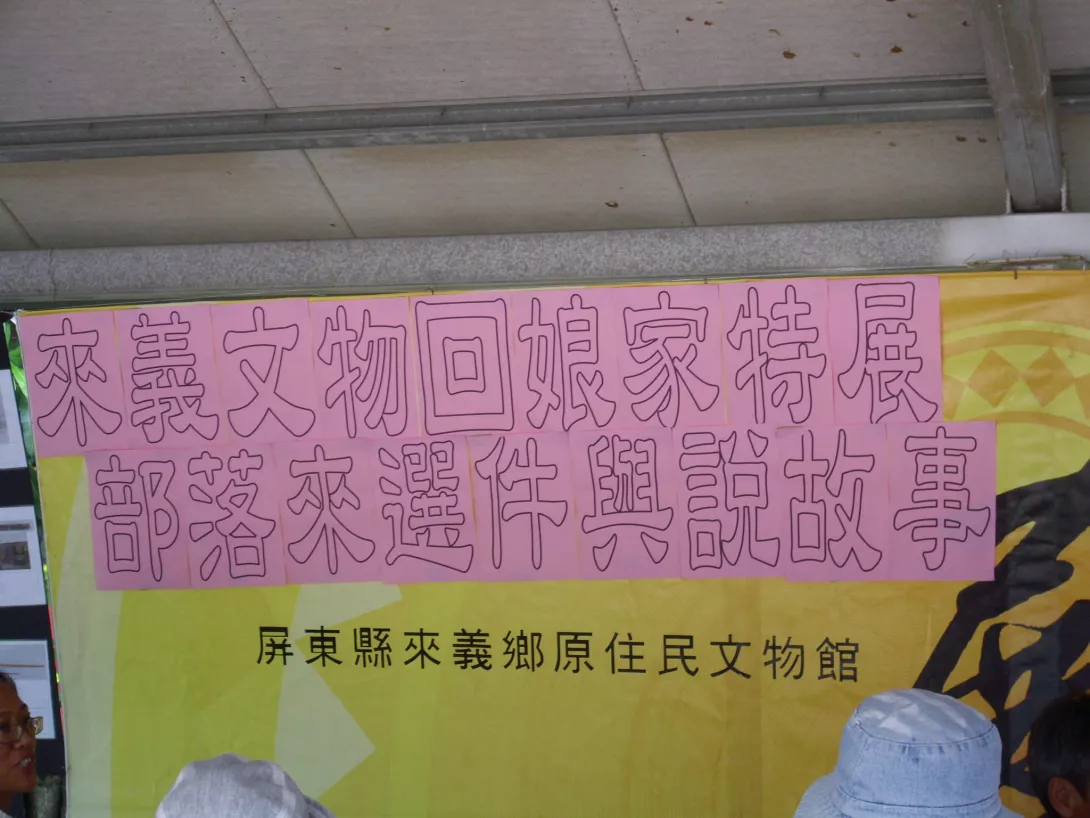 來義文物回娘家特展
部落來選件與說故事
屏東縣來義鄉原住民文物館